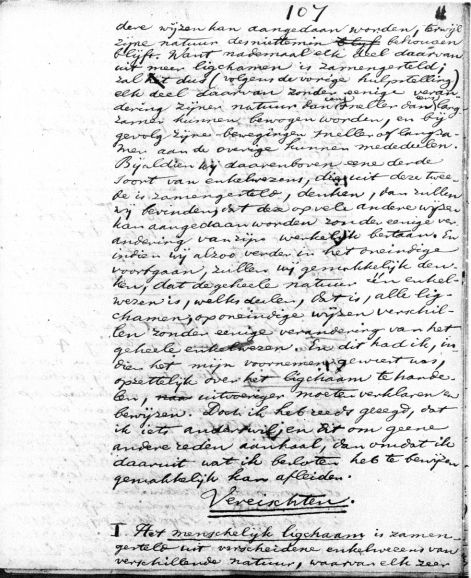 107
dere wijzen kan aangedaan worden, terwijl
zijne natuur desniettemin blijf behouden
blijft. Want nademaal elk deel daarvan
uit meer ligchamen is zamengesteld;
zal dus (volgens de vorige hulpstelling)
elk deel daarvan zonder eenige veran
dering zijner natuur dan eens sneller dan eens lang
zamer kunnen bewogen worden, en bij
gevolg zijne bewegingen sneller of langza-
mer aan de overige kunnen mededeelen.
Bijaldien wij daarenboven eene derde
soort van enkelwezens, die uit deze twee
de is zamengesteld, denken, dan zullen
wij bevinden, dat deze op vele andere wijzen
kan aangedaan worden zonder eenige ver-
andering van zijn werkelijk bestaan. En
indien wij alzoo verder in het oneindige
voortgaan, zullen wij gemakkelijk den-
ken, dat de geheele natuur één enkel-
wezen is, welks deelen, dat is, alle lig-
chamen, op oneindige wijzen verschil-
len zonder eenige verandering van het
geheele enkelwezen. En dit had ik, in-
dien het mijn voornemen geweest was,
opzettelijk over het ligchaam te hande-
len, uitvoeriger moeten verklaren en
bewijzen. Doch ik heb reeds gezegd, dat
ik iets anders wil, en dit om geene
andere reden aanhaal, dan omdat ik
daaruit wat ik besloten heb te bewijzen
gemakkelijk kan afleiden.
Vereischten.
I Het menschelijk ligchaam is zamen-
gesteld uit verscheidene enkelwezens van
verschillende natuur, waarvan elk zeer